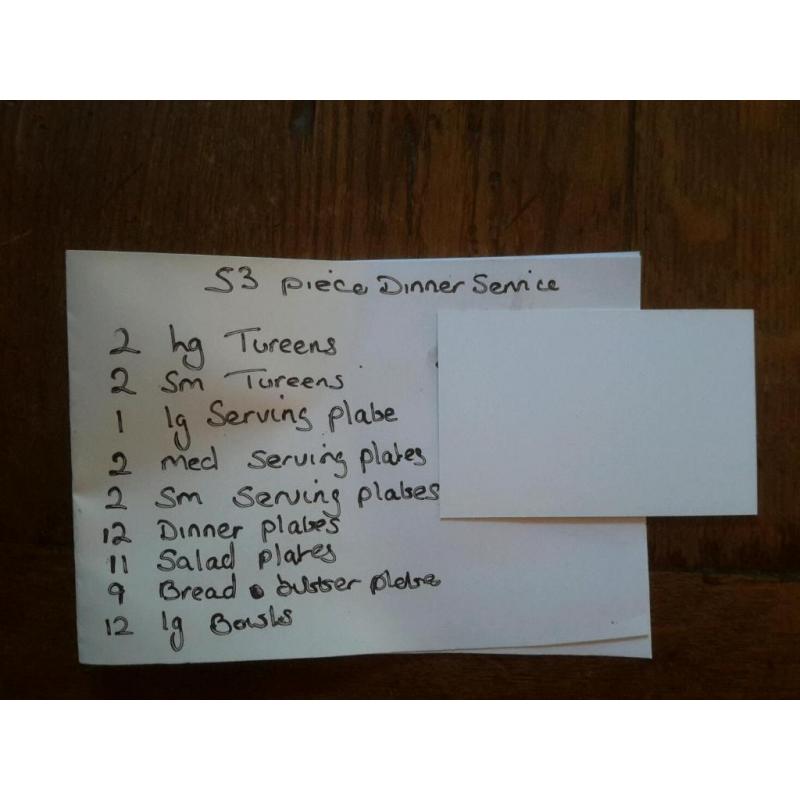 53 piece Dinner Service
2 lg Tureens
2 Sm Tureens
1 lg Serving plate
2 med Serving plates
2 Sm Serving plates
12 Dinner plates
11 Salad plates
9 Bread & butter plate
12 lg Bowls